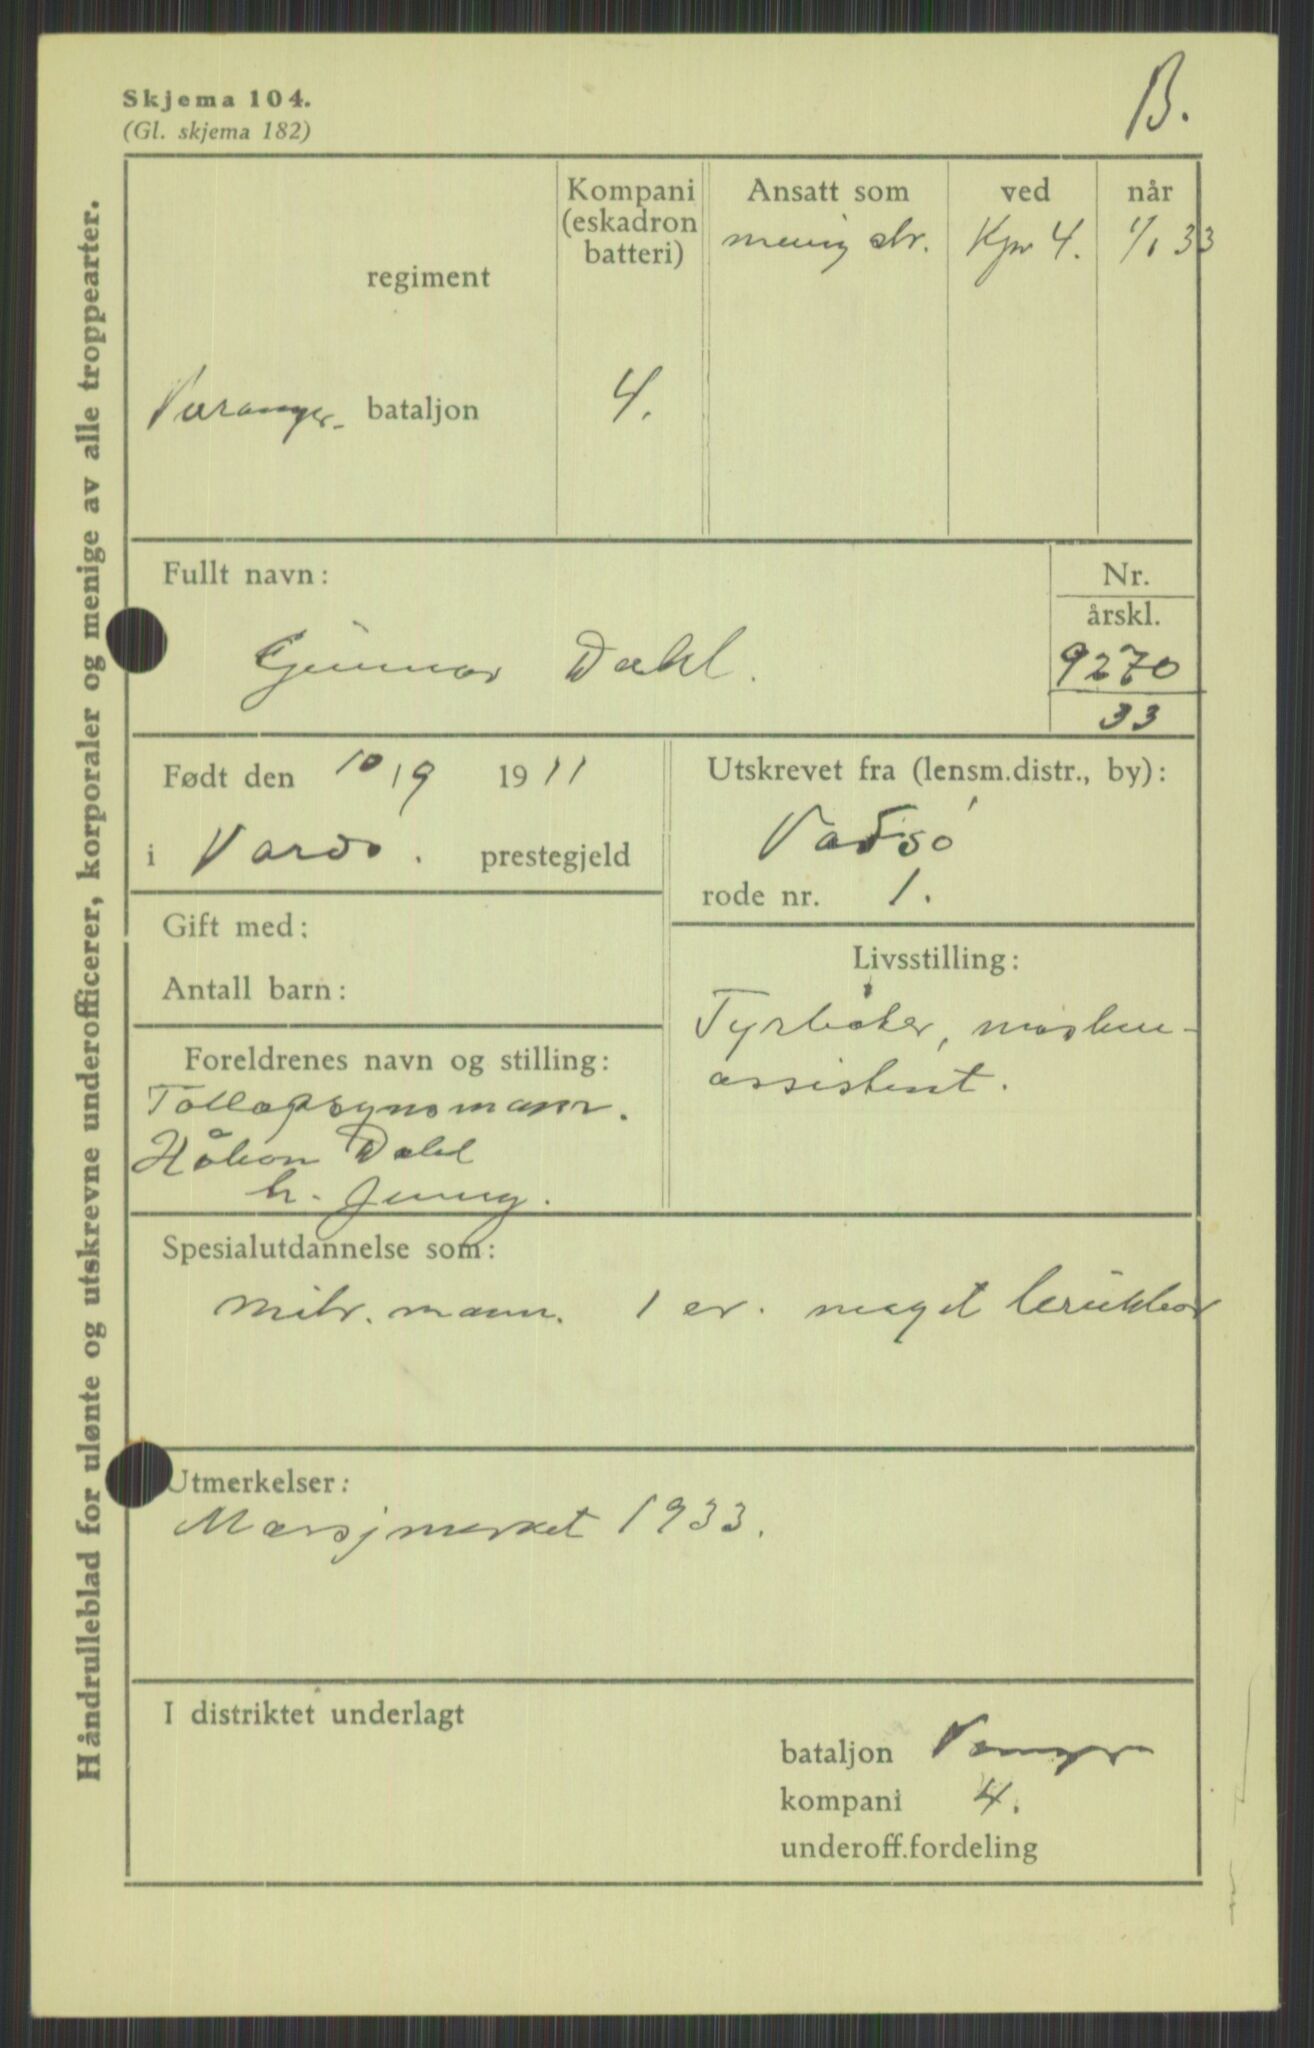 B.
Skjema 104.
(Gl. skjema 182)
Håndrulleblad for ulønte og utskrevne underofficerer, korporaler og menige av alle troppearter.
regiment
Varanger. bataljon
Kompani
(eskadron
batteri)
4.
Ansatt som
menig str.
ved
Kpn 4.
når
1/1 33
Fullt navn:
Gunnar Dahl.
Nr.
årskl.
9270
33
Født den 10/9 1911
i Vardø. prestegjeld
Utskrevet fra (lensm.distr., by):
Vadsø
rode nr. 1.
Gift med:
Antall barn:
Livsstilling:
Fyrbøter, maskin-
assistent.
Foreldrenes navn og stilling:
Tollopsynsmann.
Håkon Dahl
h. Jenny.
Spesialutdannelse som:
mitr. mann. 1 er. meget brukbar
Utmerkelser:
Marsjmerket 1933.
I distriktet underlagt
bataljon Varanger
kompani 4.
underoff.fordeling